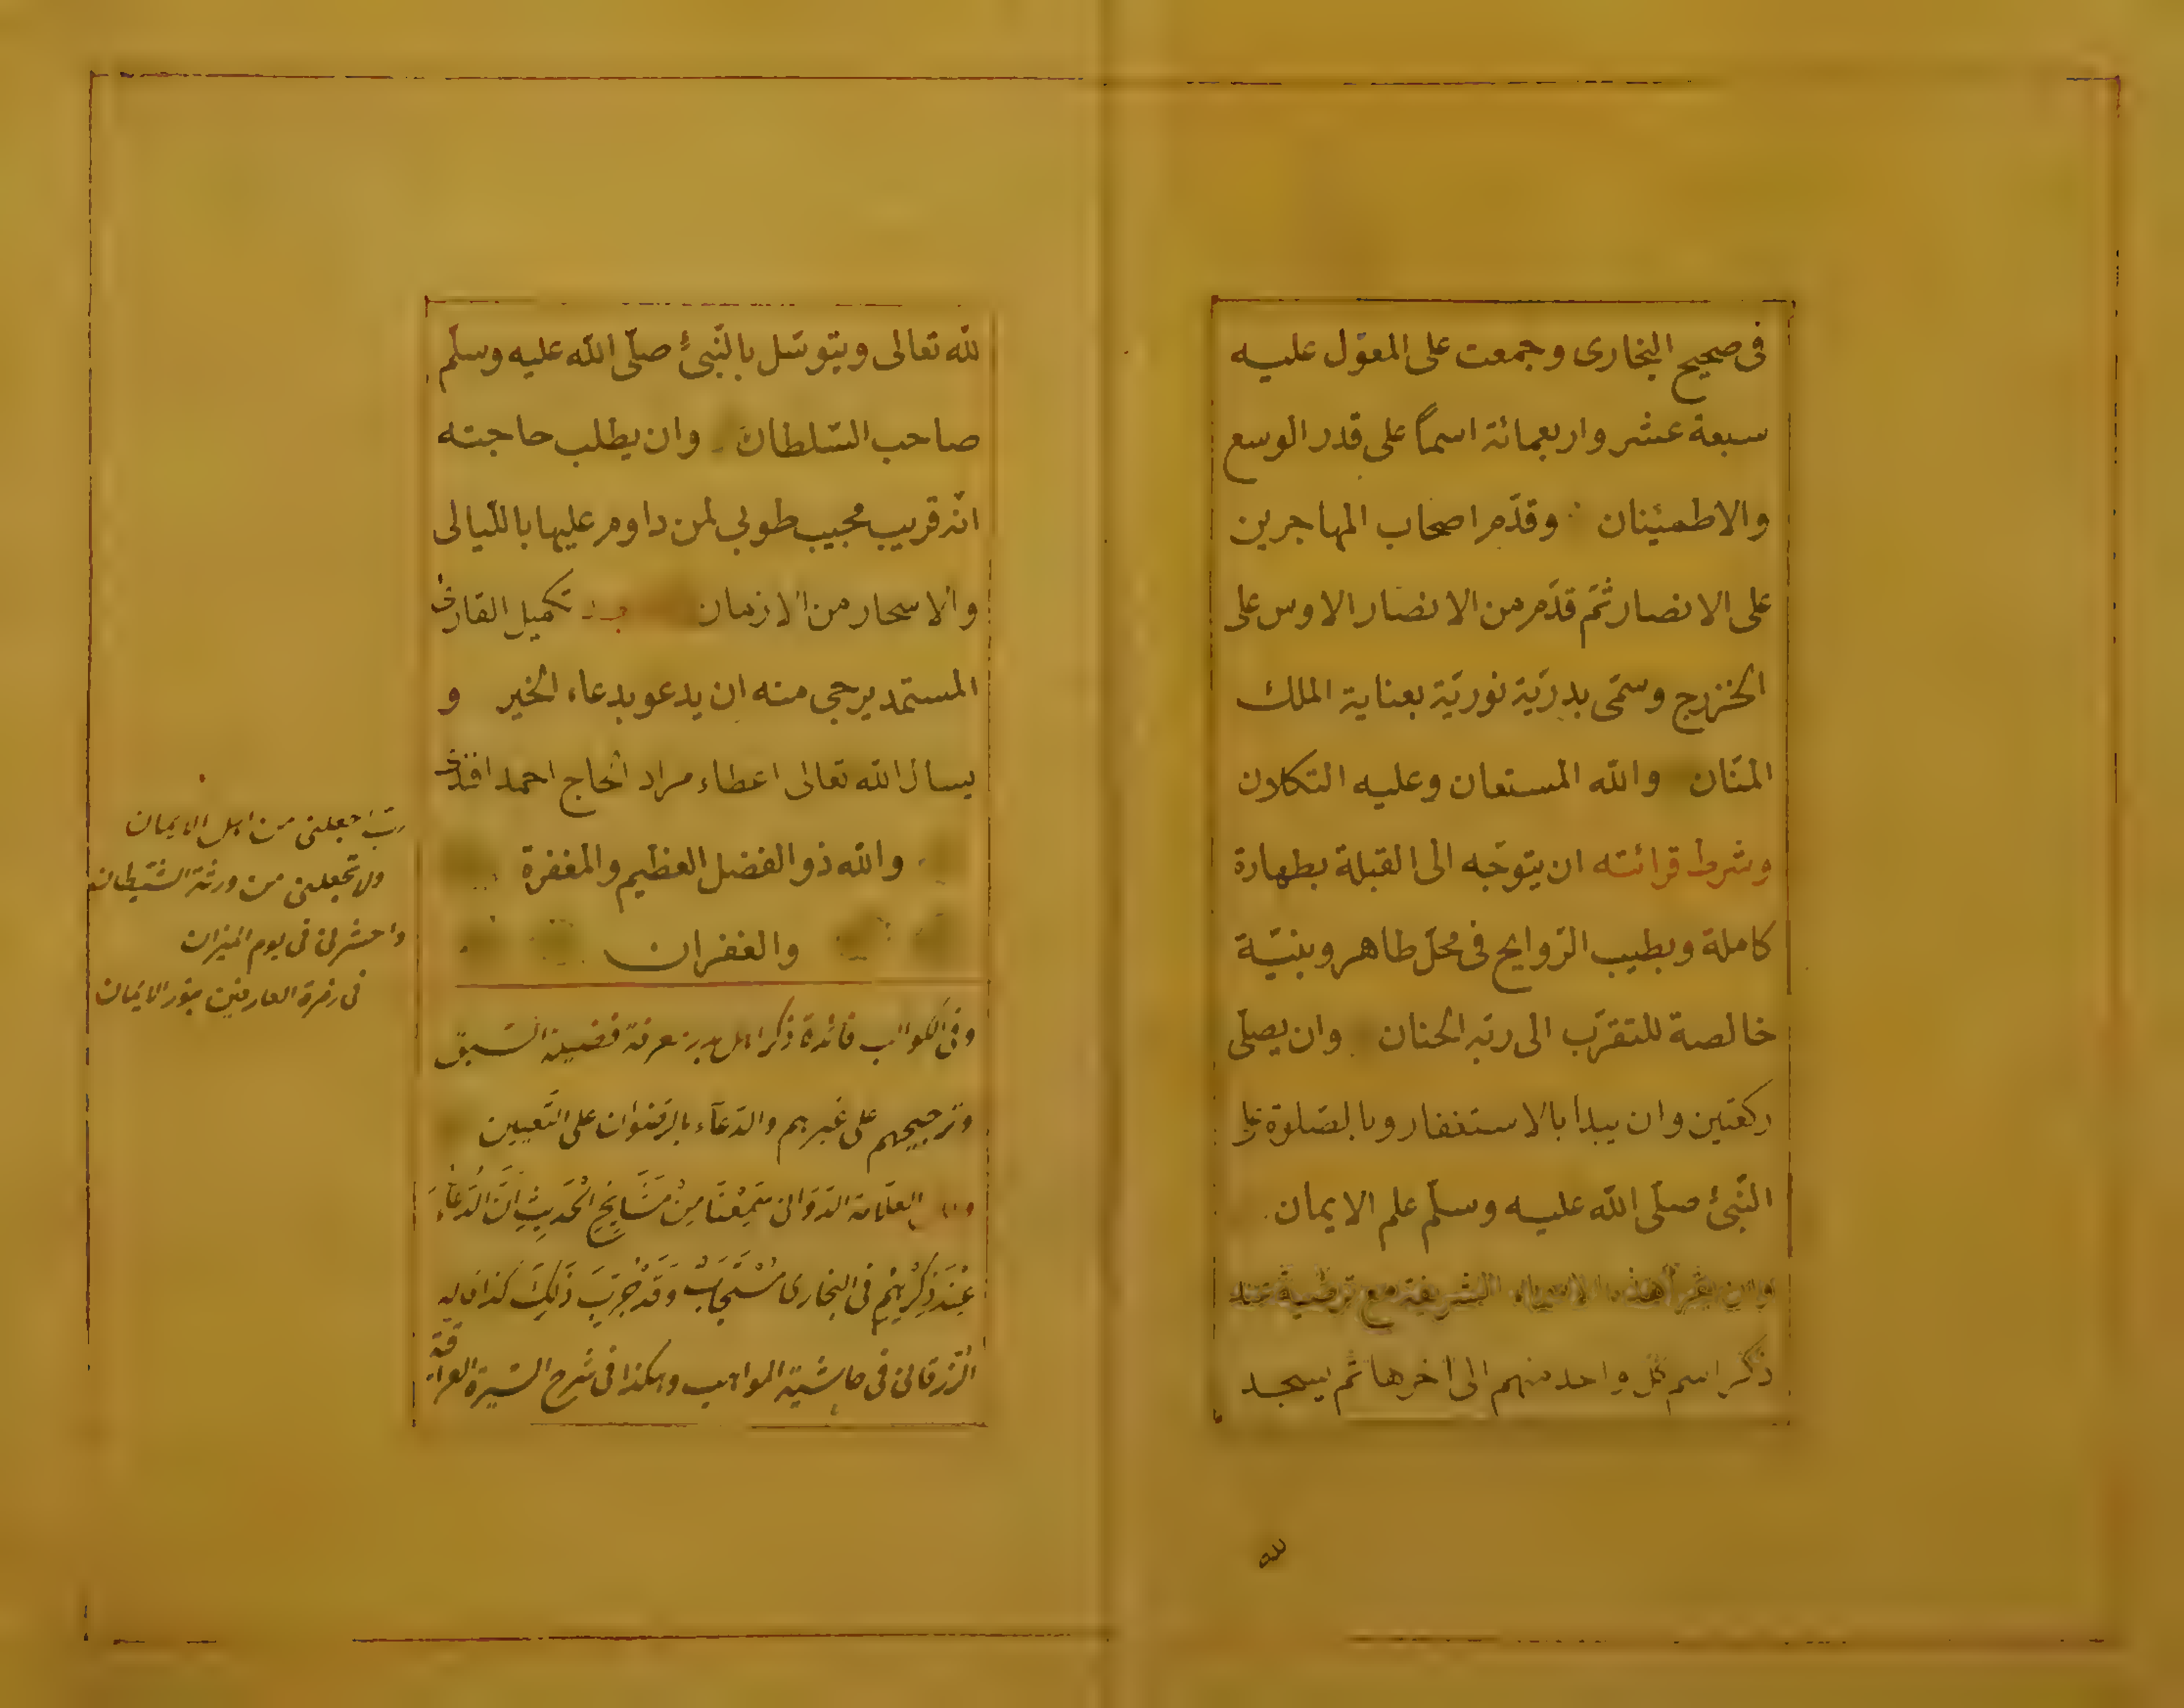 فى صحيح البخارى وجمعت على المعوّل عليه
سبعة عشر واربعمائة اسماً على قدر الوسع
والاطمئنان وقدّم اصحاب المهاجرين
على الانصار ثمّ قدّم من الانصار الاوس على
الخزرج وسمّى بدريّة نوريّة بعناية الملك
المنّان والله المستعان وعليه التكلان
وشرط قرائته ان يتوجّه الى القبلة بطهارة
كاملة وبطيب الروايح فى محلّ طاهر وبنيّة
خالصة للتقرّب الى ربّه الحنان وان يصلّى
ركعتين وان يبدأ بالاستغفار وبالصّلوة على
النّبىّ صلّى الله عليه وسلّم علم الايمان
وان يقرأ هذه الاسماء الشريفة مع ترضية عند
ذكر اسم كل واحد منهم الى اخرها ثم يسجد
لله
لله تعالى ويتوسّل بالنّبىّ صلّى الله عليه وسلّم
صاحب السّلطان وان يطلب حاجته
انّه قريب مجيب طوبى لمن داوم عليها بالليالى
والاسحار من الازمان تكميل القارئ
المستمد يرجى منه ان يدعو بدعاء الخير و
يسأل الله تعالى اعطاء مراد الحاج احمد افندى
والله ذو الفضل العظيم والمغفرة
والغفران
وفى الكواكب فائدة ذكر اهل بدر معرفة فضيلة السّبق
وترجيحهم على غيرهم والدّعآء بالرضوان على التّعيين
العلّامة الدّوّانى سَمِعْنَا مِنْ مَشَايِخِ الْحَدِيثِ اَنَّ الدُّعَاءَ
عِنْدَ ذِكْرِهِمْ فى البخارى مُسْتَجَابٌ وَقَدْ جُرِّبَ ذَلِكَ كذا قاله
الزّرقانى فى حاشية المواهب وهكذا فى شرح السّيرة العراقية
ربّ اجعلنى من اهل الايمان
ولا تجعلنى من ورثة الشيطان
واحشرنى فى يوم الميزان
فى زمرة العارفين بنور الايمان